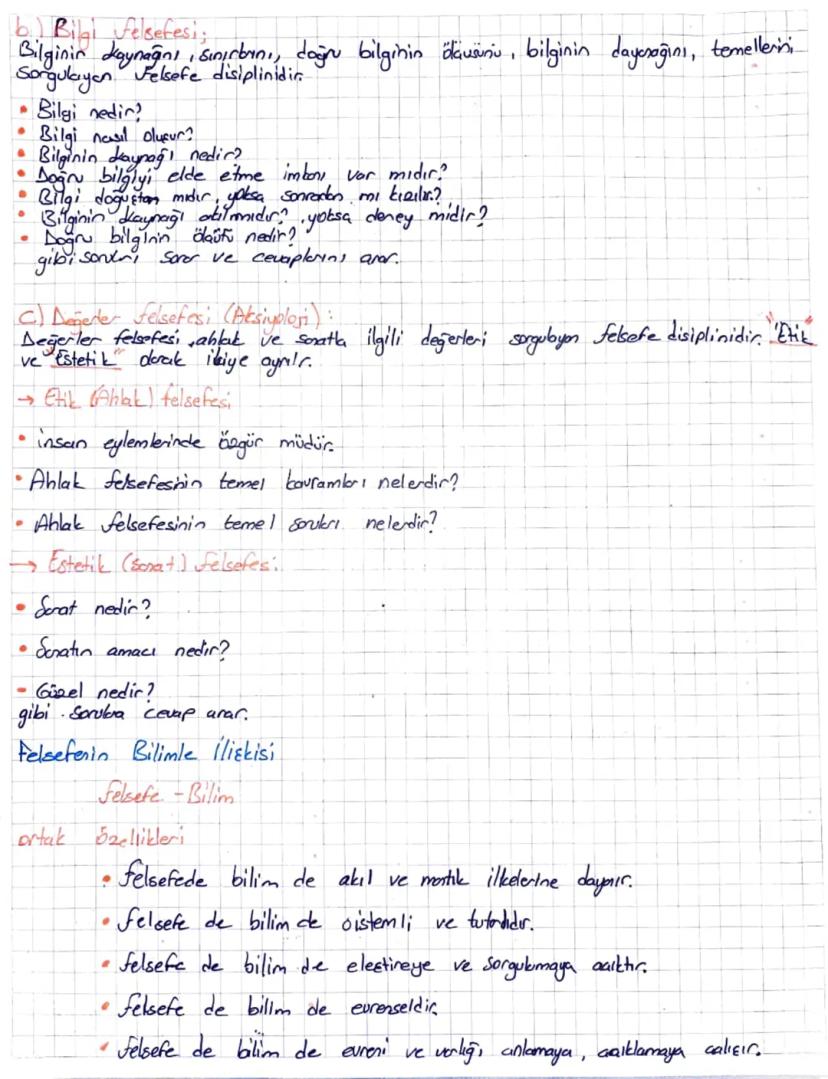 b.) Bilgi felsefesi;
Bilginin kaynağını, sınırlarını, doğru bilginin ölçüsünü, bilginin dayanağını, temellerini
Sorgulayan felsefe disiplinidir.
• Bilgi nedir?
• Bilgi nasıl oluşur?
• Bilginin kaynağı nedir?
• Doğru bilgiyi elde etme imkanı var mıdır?
• Bilgi doğuştan mıdır, yoksa sonradan mı
• Bilginin kaynağı akıl mıdır?, yoksa deney midir?
• Doğru bilginin ölçütü nedir?
gibi soruları sorar ve cevaplarını arar.
C) Değerler felsefesi (Aksiyoloji):
Değerler felsefesi, ahlak ve sanatla ilgili değerleri sorgulayan felsefe disiplinidir. "Etik"
ve "Estetik" olarak ikiye ayrılır.
→ Etik (Ahlak) felsefesi
• insan eylemlerinde özgür müdür.
• Ahlak felsefesinin temel kavramları nelerdir?
• Ahlak felsefesinin temel soruları nelerdir?
→ Estetik (Sanat) felsefesi
• Sanat nedir?
• Sanatın amacı nedir?
- Güzel nedir?
gibi sorulara cevap arar.
Felsefenin Bilimle İlişkisi
felsefe - Bilim
ortak özellikleri
• felsefede bilim de akıl ve mantık ilkelerine dayanır.
• felsefe de bilim de sistemli ve tutarlıdır.
• felsefe de bilim de eleştireye ve sorgulamaya açıktır.
• felsefe de bilim de evrenseldir.
• felsefe de bilim de evreni ve varlığı anlamaya, açıklamaya çalışır.